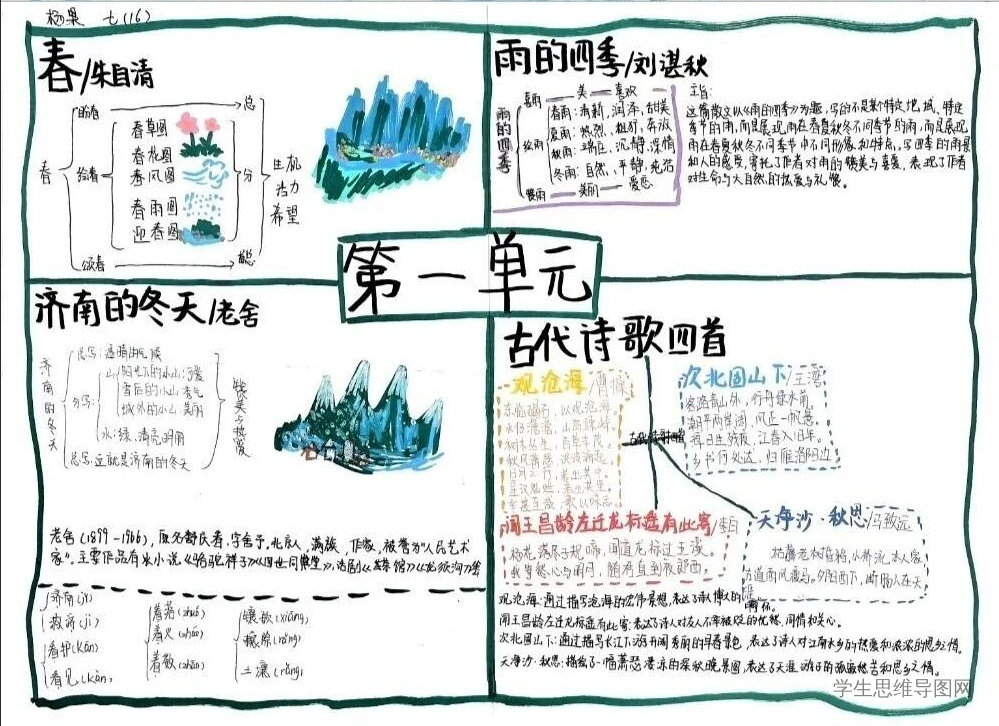 杨果 七(16)
春/朱自清
春
盼春 总
绘春 分
春草图
春花图
春风图
春雨图
迎春图
颂春 总
生机
活力
希望
雨的四季/刘湛秋
雨的四季
喜雨 美 喜欢
绘雨
春雨:清新,润泽,甜美
夏雨:热烈、粗犷、奔放
秋雨:端庄、沉静、深情
冬雨:自然、平静、纯洁
赞雨 美丽 爱恋
主旨:
这篇散文以《雨的四季》为题,写的不是某个特定地、域、特定
季节的雨,而是展现雨在春夏秋冬不同季节的雨,而是展现
雨在春夏秋冬不同季节中不同形象和特点,写四季的雨景
和人的感受,寄托了作者对雨的赞美与喜爱,表现了作者
对生命与大自然的热爱与礼赞。
第一单元
济南的冬天/老舍
济南的冬天
总写:温晴的气候
分写:
山 阳光下的小山:可爱
雪后的小山:秀气
城外的小山:美丽
水:绿、清亮明丽
总写:这就是济南的冬天
赞美与热爱
老舍(1899-1966),原名舒庆春,字舍予,北京人,满族,作家,被誉为“人民艺术
家”,主要作品有长小说《骆驼祥子》《四世同堂》,话剧《茶馆》《龙须沟》等
济南(jǐ)
救济(jì)
看护(kān)
看见(kàn)
着落(zhuó)
着火(zháo)
着数(zhāo)
镶嵌(xiāng)
土壤(rǎng)
古代诗歌四首
观沧海/曹操
东临碣石,以观沧海。
水何澹澹,山岛竦峙。
树木丛生,百草丰茂。
秋风萧瑟,洪波涌起。
日月之行,若出其中。
星汉灿烂,若出其里。
幸甚至哉,歌以咏志。
次北固山下/王湾
客路青山外,行舟绿水前。
潮平两岸阔,风正一帆悬。
海日生残夜,江春入旧年。
乡书何处达,归雁洛阳边。
闻王昌龄左迁龙标遥有此寄/李白
杨花落尽子规啼,闻道龙标过五溪。
我寄愁心与明月,随君直到夜郎西。
天净沙·秋思/马致远
枯藤老树昏鸦,小桥流水人家
古道西风瘦马。夕阳西下,断肠人在天
涯
观沧海:通过描写沧海的宏伟景想,表达了诗人博大的
闻王昌龄左迁龙标遥有此寄:表达了诗人对友人不幸被贬的忧愁、同情和关心。
次北固山下:通过描写长江下游开阔秀丽的早春景色,表达了诗人对江南水乡的热爱和浓浓的思乡情。
天净沙·秋思:描绘了一幅萧瑟凄凉的深秋晚景图,表达了天涯游子的孤寂愁苦和思乡之情。
学生思维导图网